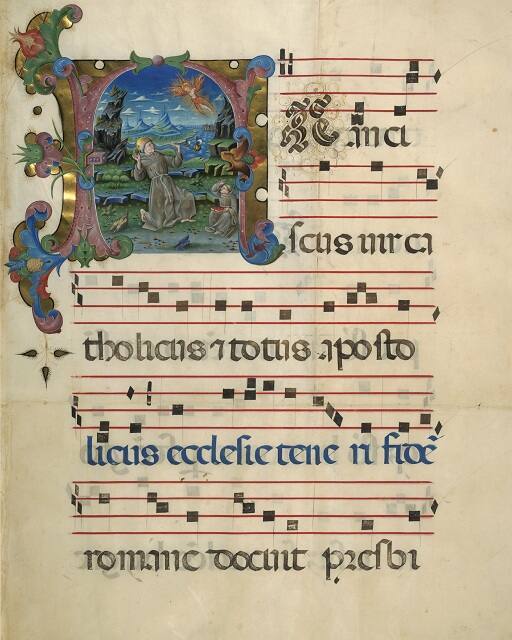 FRanci
scus uir ca
tholicus ⁊ totus aposto
licus ecclesie tene ri fidē
romane docuit presbi